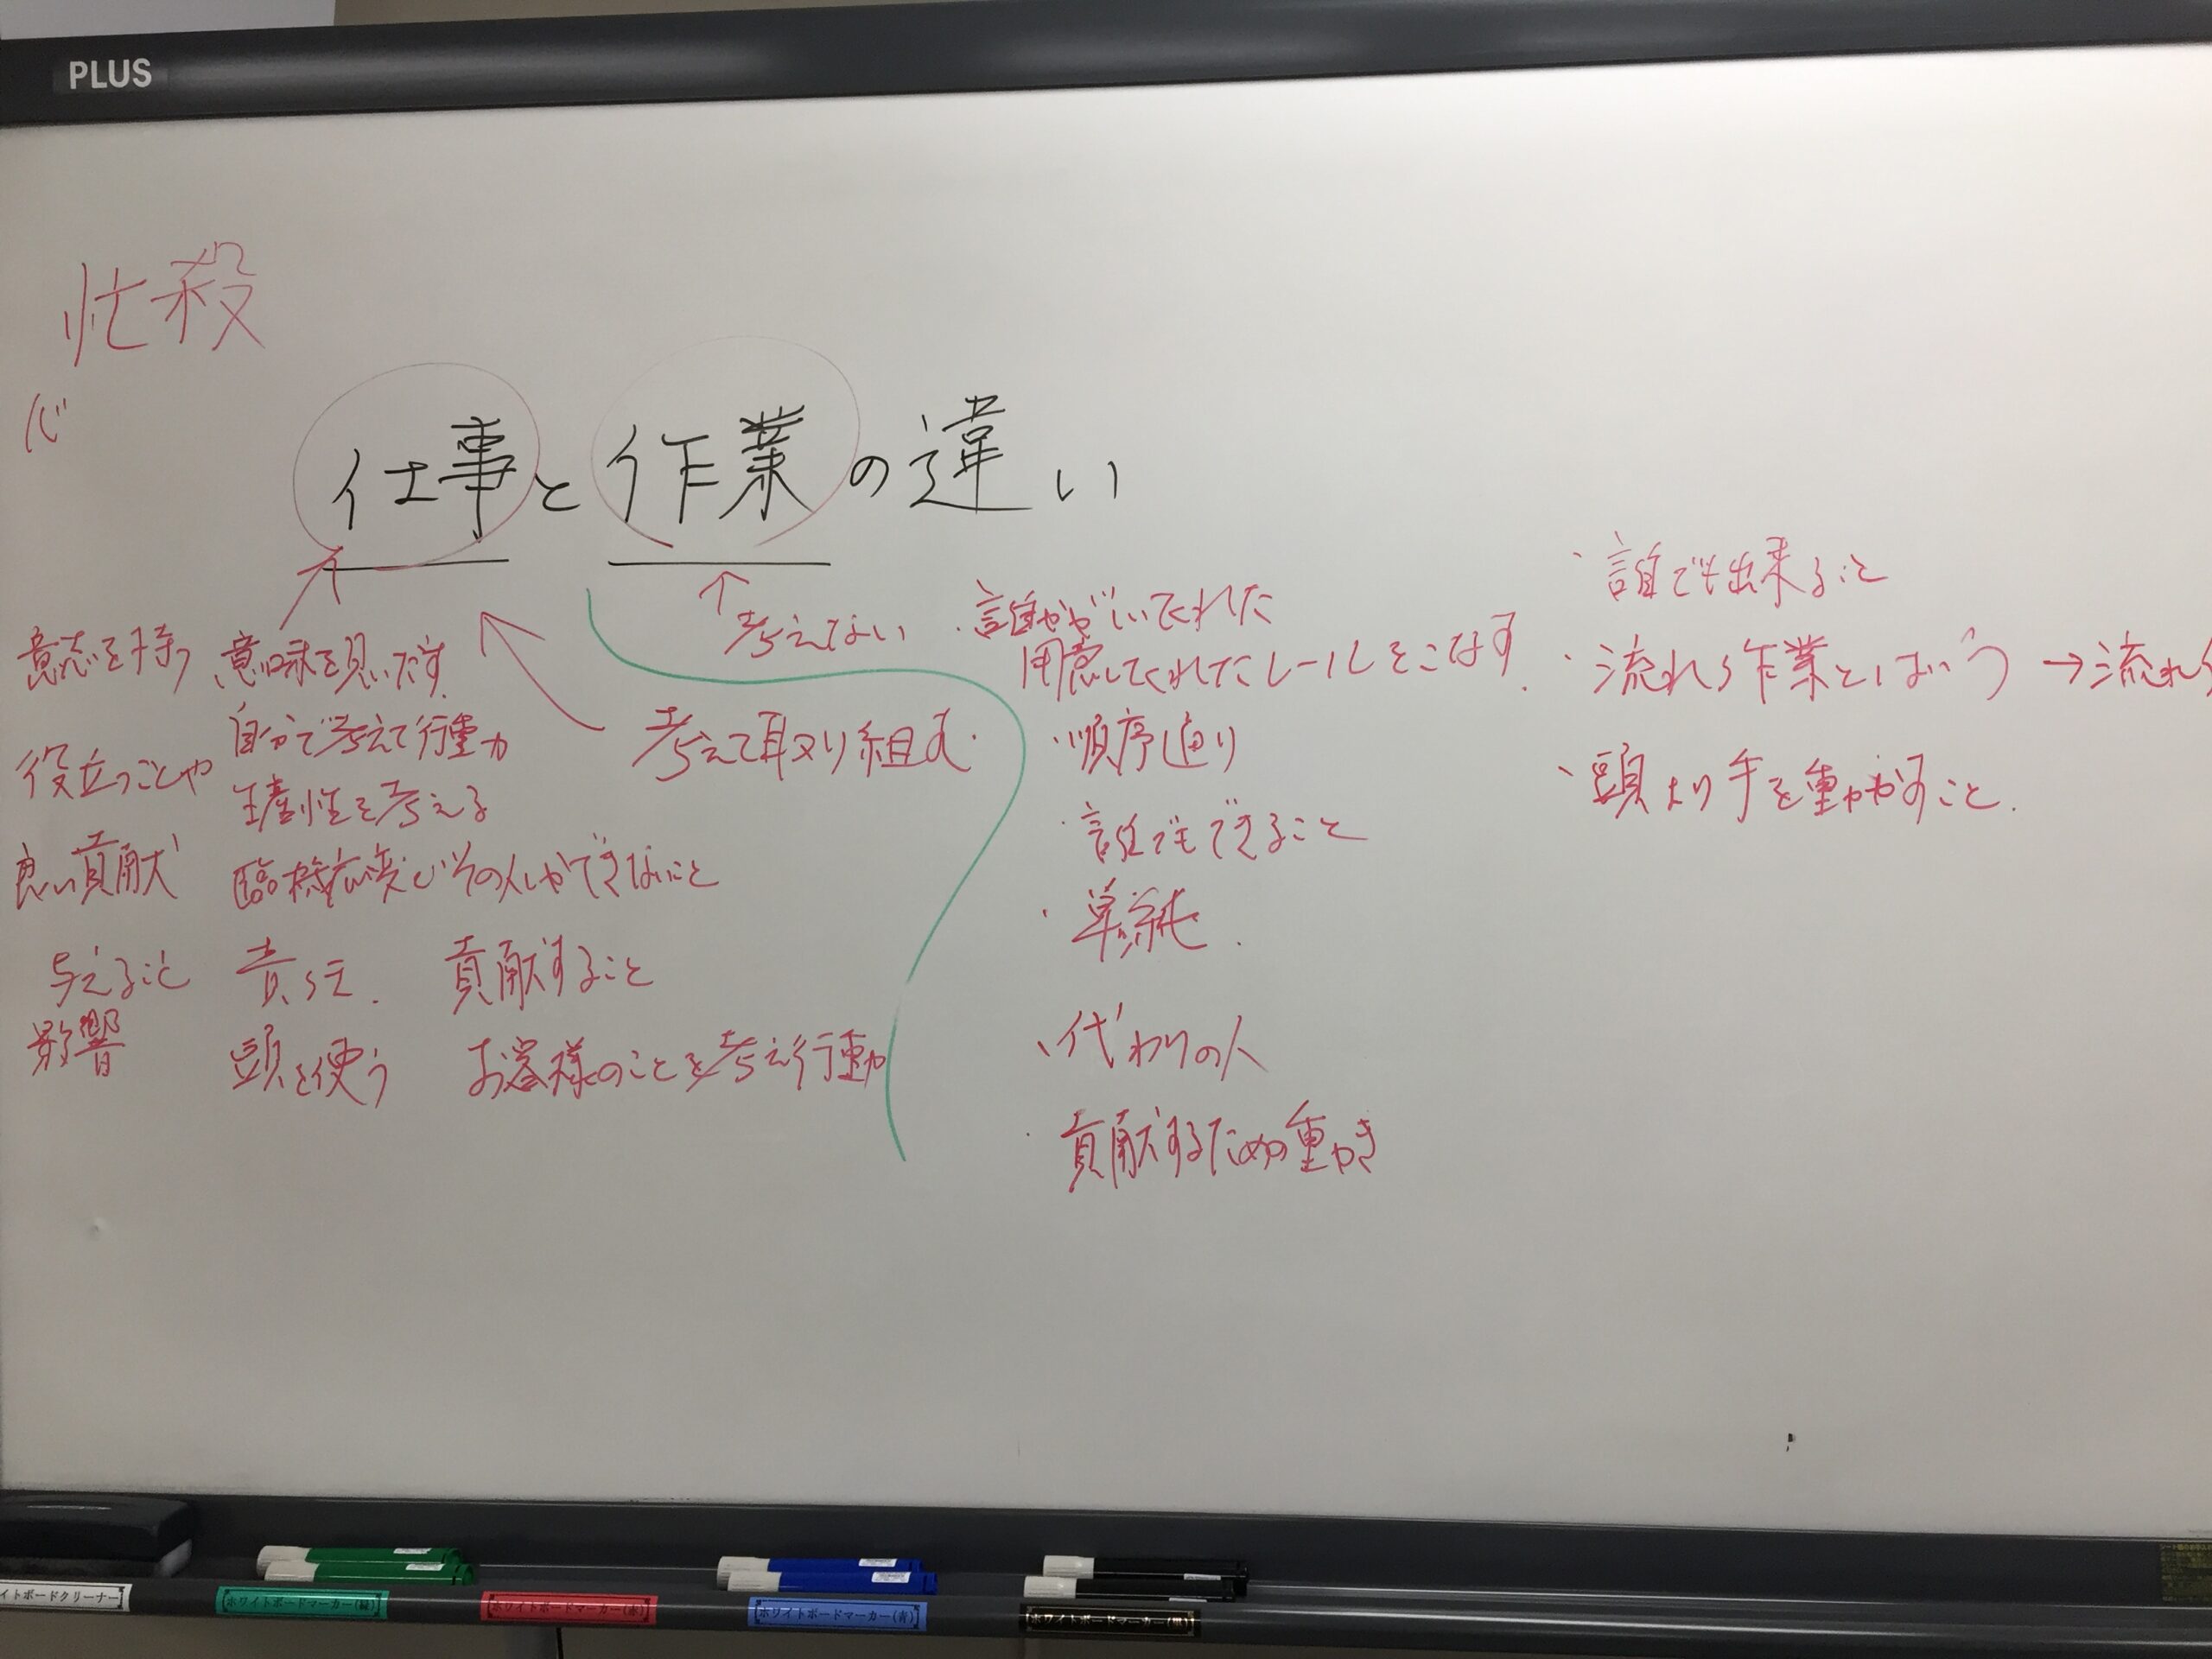 PLUS
忙殺
仕事と作業の違い
考えてない
意志を持つ
役立つことや
良い貢献
与えること
影響
意味を見いだす
自分で考えて行動
生産性を考える
臨機応変
その人しかできないこと
責任
貢献すること
頭を使う
お客様のことを考え行動
考えて取り組む
・誰かが
用意してくれたレールをこなす
・順序通り
・誰でもできること
・単純
・代わりの人
・貢献するための動き
・誰でも出来ること
・流れ作業とはいう→流れ
・頭より手を動かすこと
イトボードクリーナー
ホワイトボードマーカー(緑)
ホワイトボードマーカー(赤)
ホワイトボードマーカー(青)
ホワイトボードマーカー(黒)